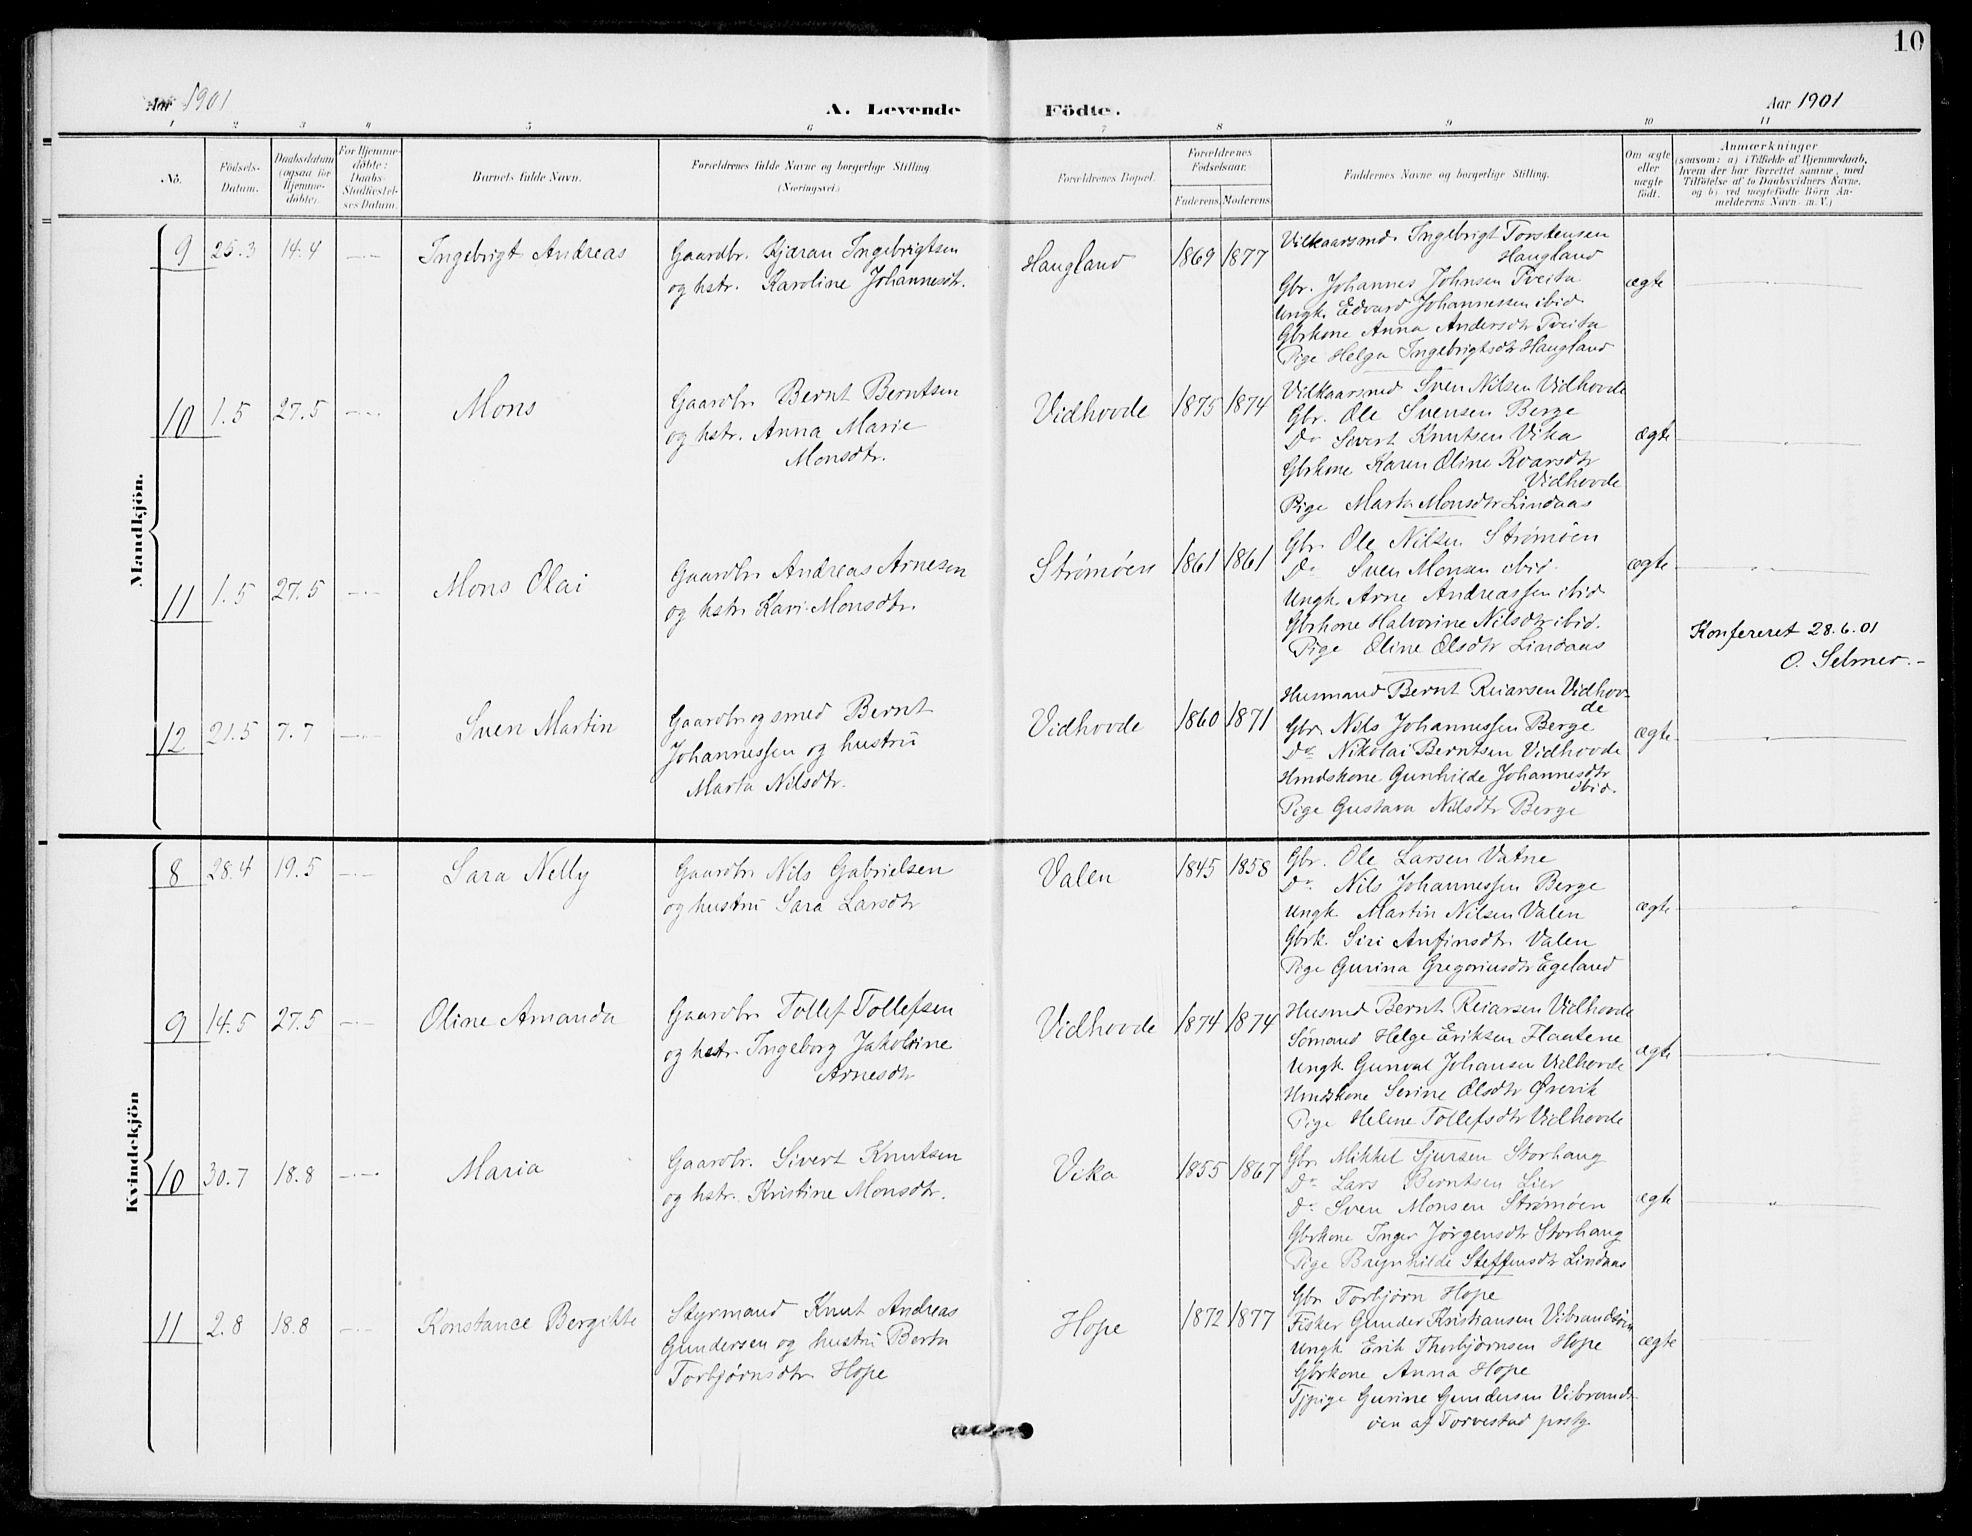 10
Aar 1901
A. Levende Födte.
Aar 1901
1 2 3 4 5 6 7 8 9 10 11
No.
Födsels-
Datum.
Daabsdatum
(ogsaa for
Hjemme-
döbte).
For Hjemme-
döbte:
Daabs-
Stadfæstel-
ses Datum.
Barnets fulde Navn.
Forældrenes fulde Navne og borgerlige Stilling
(Næringsvei.)
Forældrenes Bopæl.
Forældrenes
Födselsaar.
Faderens. Moderens.
Faddernes Navne og borgerlige Stilling.
Om ægte
eller
uægte
født.
Anmærkninger
(saasom: a) i Tilfælde af Hjemmedaab,
hvem der har forrettet samme, med
Tilföielse af to Daabsvidners Navne,
og b) ved uægtefödte Börn An-
melderens Navn m. V.)
Mandkjön.
9 25.3 14.4 Ingebrigt Andreas
Gaardbr. Kjæran Ingebrigtsen
og hstr. Karoline Johannesdtr.
Haugland 1869 1877
Vilkaarsmd. Ingebrigt Torstensen
Haugland
Gbr. Johannes Johnsen Tveita
Ungk. Edvard Johannessen ibid.
Gbrkone Anna Andersdtr Tveita
Pige Helga Ingebrigtsdtr Haugland
ægte
10 1.5 27.5 Mons
Gaardbr. Bernt Berntsen
og hstr. Anna Marie
Monsdtr.
Vidhovde 1875 1874
Vilkaarsmd Sven Nilsen Vidhovde
Gbr. Ole Svensen Berge
Do Sivert Knutsen Vika
Gbrkone Karen Oline Roarsdtr
Vidhovde
Pige Marta Monsdtr Lindaas
ægte
11 1.5 27.5 Mons Olai
Gaardbr. Andreas Arnesen
og hstr. Kari Monsdtr.
Strømøen 1861 1861
Gbr. Ole Nilsen Strømøen
Do Sven Monsen ibid.
Ungk. Arne Andreassen ibid
Gbrkone Halvorine Nilsdtr ibid.
Pige Eline Olsdtr Lindaas
ægte
Konfereret 28.6.01
O. Selmer.-
12 21.5 7.7 Sven Martin
Gaardbr og smed Bernt
Johannessen og hustru
Marta Nilsdtr.
Vidhovde 1860 1871
Husmand Bernt Reiarsen Vidhov-
de
Gbr. Nils Johannessen Berge
Do Nikolai Berntsen Vidhovde
Hmdskone Gunhilde Johannesdtr
ibid.
Pige Gustava Nilsdtr Berge
ægte
Kvindekjön
8 28.4 19.5 Sara Nelly
Gaardbr. Nils Gabrielsen
og hustru Sara Larsdtr
Valen 1845 1858
Gbr. Ole Larsen Vatne
Do. Nils Johannessen Berge
Ungk. Martin Nilsen Valen
Gbrk. Siri Anfinsdtr. Valen
Pige Gurina Gregoriusdtr Egeland
ægte
9 14.5 27.5 Oline Amanda
Gaardbr. Tollef Tollefsen
og hstr. Ingeborg Jakobine
Arnesdtr
Vidhovde 1874 1874
Husmd Bernt Reiarsen Vidhovde
Sømand Helge Eriksen Flaatene
Ungk Gunval Johansen Vidhovde
Hmdskone Serine Olsdtr Ørevik
Pige Helene Tollefsdtr Vidhovde
ægte
10 30.7 18.8 Maria
Gaardbr. Sivert Knutsen
og hstr. Kristine Monsdtr.
Vika 1855 1867
Gbr. Mikkel Sjursen Storhaug
Do Lars Berntsen Lier
Do. Sven Monsen Strømøen
Gbrkone Inger Jørgensdtr Storhaug
Pige Brynhilde Steffensdtr Lindaas
ægte
11 2.8 18.8 Konstance Bergitte
Styrmand Knut Andreas
Gundersen og hustru Berta
Torbjørnsdtr. Hope
Hope 1872 1877
Gbr Torbjørn Hope
Fisker Gunder Kristiansen Vibrandsøen
Ungk Erik Thorbjørnsen Hope
Gbrkone Anna Hope
Tjpige Gurine Gundersen Vibrands-
øen af Torvestad prstg.
ægte